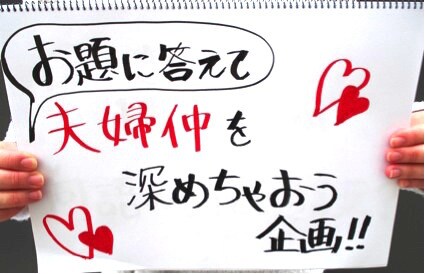 お題に答えて
夫婦仲を
深めちゃおう
企画!!